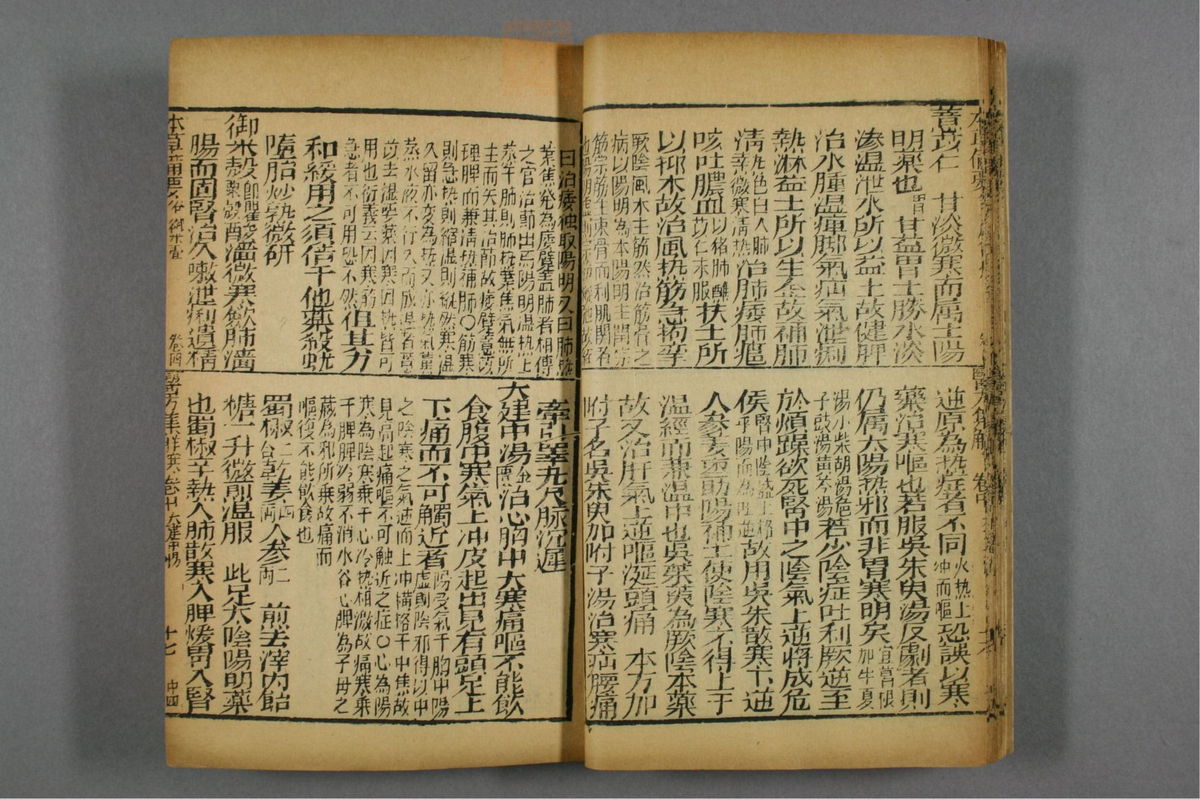 薏苡仁 甘淡微寒而属土陽
明藥也 甘益胃土勝水淡
滲溫泄水所以益土故健脾
治水腫溫痺脚氣疝氣泄痢
熱淋益土所以生金故補肺
清熱色白入肺微寒清熱治肺痿肺癰
咳吐膿血以猪肺蘸苡仁末服扶土所
以抑木故治風热筋急拘攣
厥陰風木主筋然治筋骨之
病以陽明为本陽明主潤宗
筋宗筋主束骨而利肌関者
曰治痿独取陽明又曰肺热
葉焦發為痿躄盖肺者相傅
之官治節出焉陽明温热上
蒸于肺則肺热葉焦氣無所
主而失其治節故痿躄薏苡
理脾而兼清热補肺〇筋寒
則急热則縮温則縱然寒温
久留亦变為热又亦热氣薰
蒸水液不行久而成湿者薏
苡去湿要藥因寒因热皆可
用也衍義云因寒筋
急者不可用恐不然但其力
和緩用之須倍于他藥殺蚘
墮胎炒熟微研
御米殼即罌粟殼酸濇微寒歛肺濇
腸而固腎治久嗽泄痢遺精
本草備要 谷 御米壳 卷四
逆原為热症者不同火热上冲而嘔恐誤以寒
藥治寒嘔也若服吳朱萸湯反劇者則
仍属太陽热邪而非胃寒明矣宜葛根加半夏
湯小柴胡湯梔子豉湯黄芩湯若少陰症吐利厥逆至
於煩躁欲死腎中之陰氣上逆將成危
候腎中陰盛上格乎陽而為吐逆故用吳朱散寒下逆
人參姜棗助陽補土使陰寒不得上干
溫經而兼溫中也吳茱萸為厥陰本藥
故又治肝氣上逆嘔涎頭痛 本方加
附子名吳朱萸加附子湯治寒疝腰痛
牽引睪丸尺脉沉遲
大建中湯金匱治心胸中大寒痛嘔不能飲
食腹中寒氣上冲皮起出見有頭足上
下痛而不可觸近者陽受氣于胸中陽虛則陰邪得以中
之陰寒之氣逆而上冲橫格于中焦故
見高起痛嘔不可触近之症〇心為陽
寒為陰寒乘于心冷热相激故痛寒乘
于脾脾冷弱不消水谷心脾為子母之
臟為邪所乘故痛而
嘔復不能飲食也
蜀椒二合乾姜四兩人參二兩 煎去滓內飴
糖一升微煎溫服 此足太陰陽明藥
也蜀椒辛熱入肺散寒入脾煖胃入腎
醫方集解 寒 卷中 大建中湯 十七 中四